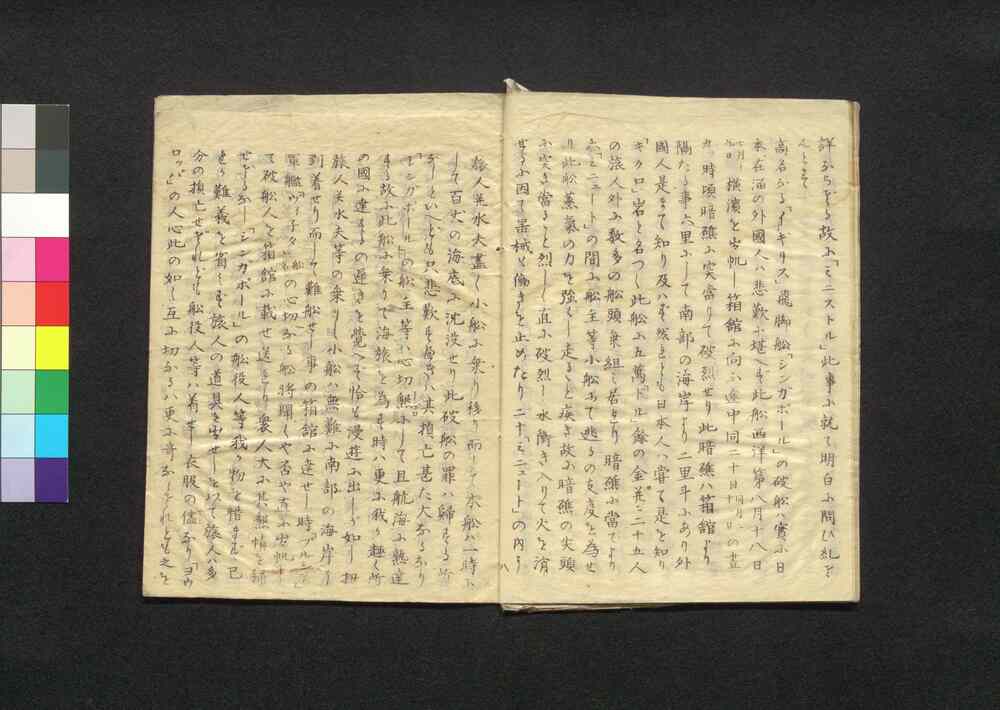 詳かならざる故に「ミニストル」此事に就て明白に問ひ糺さ
んとす
高名なる「イギリス」飛脚船「シンガポール」の破船ハ実に日
本在留の外國人ハ悲歎に堪へず此船西洋第八月十八日
七月 横濱を出帆し箱館に向ふ途中同二十日
九時頃暗礁に突當りて破烈せり此暗礁ハ箱館より
隔たる事六里にして南部の海岸より二里半にあり外
國人是まで知り及ハず然るとも日本人ハ嘗て是を知り
「キクロ」岩と名つく此船に五萬「ドル」餘の金并二十五人
の旅人外に数多の船頭乗組し若とり暗礁に當てより
六七「ミニュート」の間に船主等小船にて逃るの支度を為せ
り此船蒸氣の力を強くし走ること疾き故に暗礁の尖頭
に突き當ること烈しく直に破烈し水衝き入りて火を消
せるに因て器械を働きを止めたり二十「ミニュート」の内に
旅人并水夫盡く小船に乗り移り而して本船ハ一時に
して百丈の海底に沈没せり此破船の罪ハ歸する所
なしといへども只悲歎す而已其損亡甚た大なるなり
「シンガポール」の船主等ハ心切にして且航海に熟達
せる故に此船に乗りて海旅を為す時ハ更に我か趣く所
の國に達するの遅きを覺へず恰も漫遊に出しか如し扨
旅人并水夫等の乗りし小船ハ無難に南部の海岸に
到着せり而して難船せし事の箱館に達せし時
軍艦 の心切なる船将聞くや否や直に出帆し
て破船人を箱館に載せ送たり衆人大に其懇情を謝
せさるなし「シンガポール」の船役人等我か物を惜まず已
を難義を省ミず旅人の道具を出せしを以て旅人ハ多
分の損亡せされども船役人等ハ着せし衣服の儘なり「ヨウ
ロッパ」の人心此の如く互に切なるハ更に奇なしされとも之を